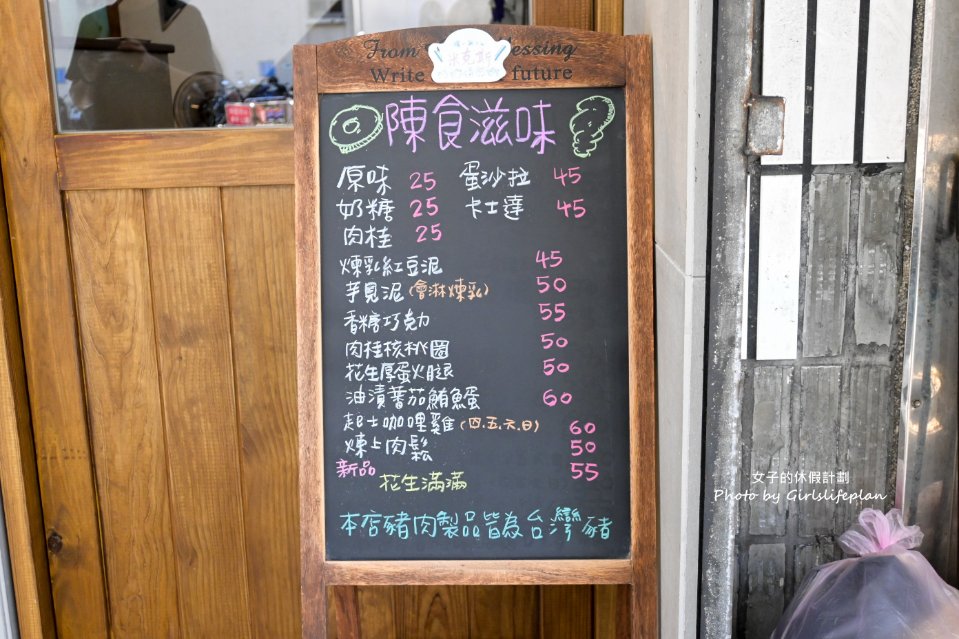 From
essing
Write
future
陳食滋味
原味 25 蛋沙拉 45
奶糖 25 卡士達 45
肉桂 25
煉乳紅豆泥 45
芋見泥(會淋煉乳) 50
香糖巧克力 55
肉桂核桃圈 50
花生厚蛋火腿 50
油漬蕃茄鮪魚蛋 60
起士咖哩雞(四.五.六.日) 60
煉上肉鬆 50
新品 55
花生滿滿
本店豬肉製品皆為台灣豬
女子的休假計劃
Photo by Girlslifeplan